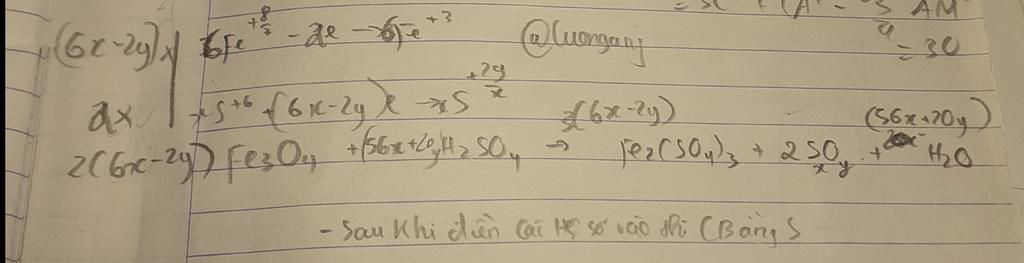 = 30
(6x-2y)x | 6Fe^{+8/3} - 2e → 6Fe^{+3} @luongang
2x | xS^{+6} + (6x-2y)e → xS^{+2y/x}
2(6x-2y) Fe3O4 + (56x+20y) H2SO4 → 3(6x-2y) Fe2(SO4)3 + 2SxOy + (56x+20y) H2O
- Sau khi điền các Hệ số vào thì CBằng S